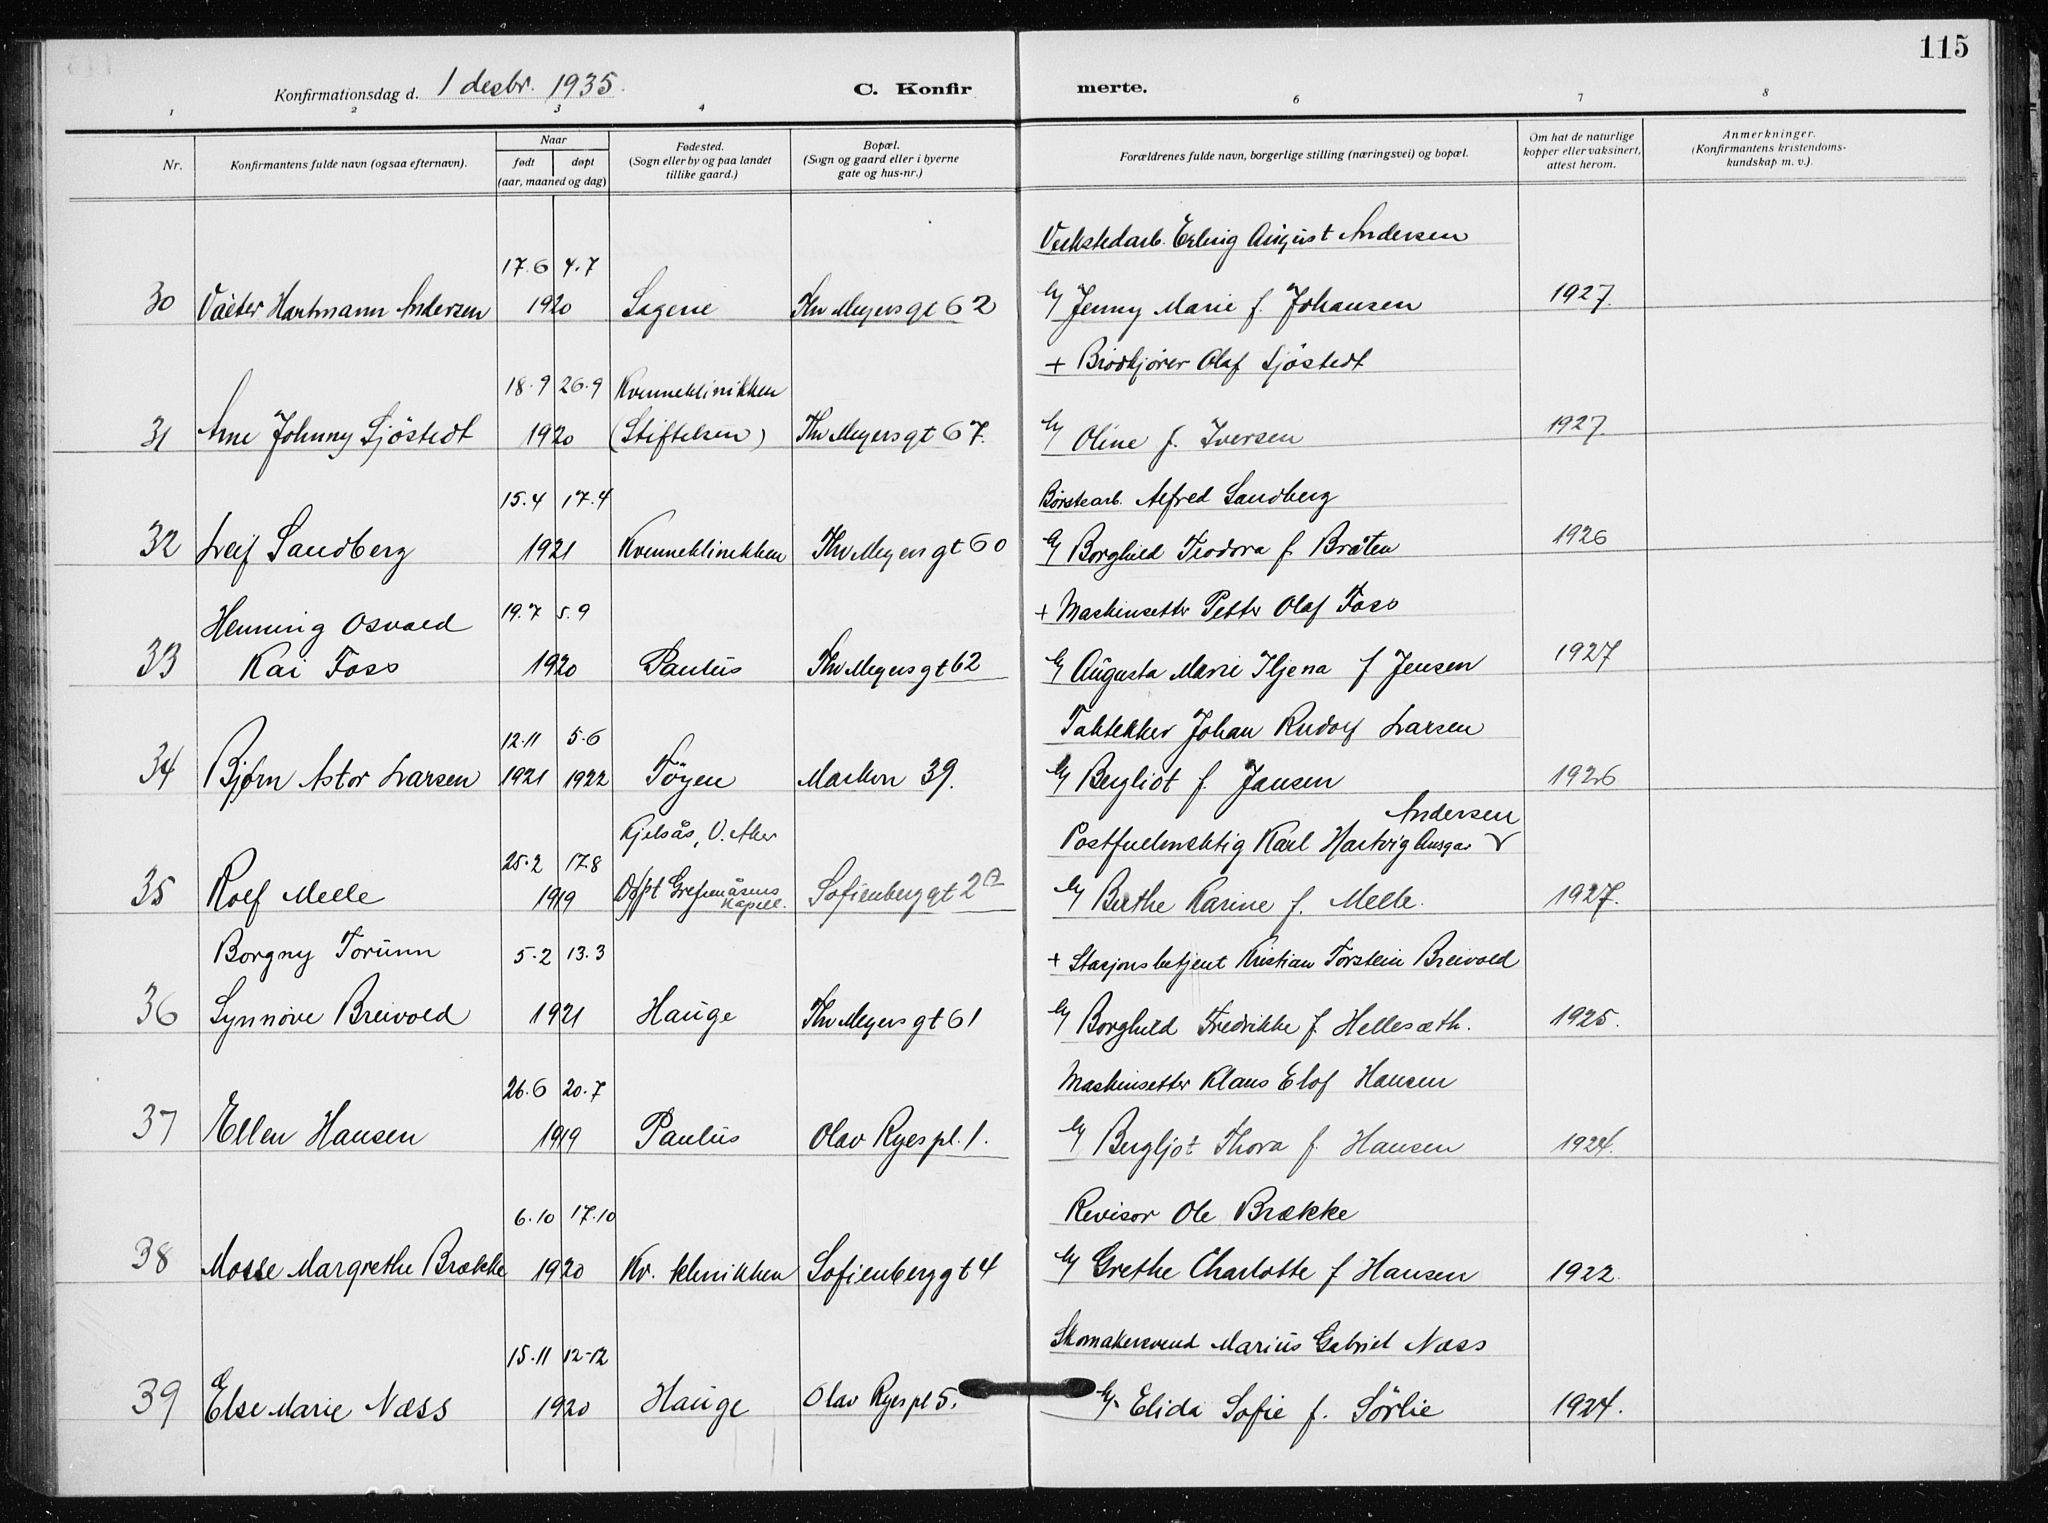 115
Konfirmationsdag d. 1 desbr. 1935.
C. Konfir merte.
1 2 3 4 6 7 8
Nr.
Konfirmantens fulde navn (ogsaa efternavn).
Naar
født døpt
(aar, maaned og dag)
Fødested.
(Sogn eller by og paa landet
tillike gaard.)
Bopæl.
(Sogn og gaard eller i byerne
gate og hus-nr.)
Forældrenes fulde navn, borgerlige stilling (næringsvei) og bopæl.
Om hat de naturlige
kopper eller vaksinert,
attest herom.
Anmerkninger.
(Konfirmantens kristendoms-
kundskap m. v.).
Verkstedarb. Erling August Andersen
17.6 4.7
30 Valter Hartmann Andersen 1920 Sagene Thv Meyersgt 62 og Jenny Marie f. Johansen 1927.
+ Brødkjører Olaf Sjøstedt
18.9 26.9 Kvinneklinikken
31 Arne Johnny Sjöstedt 1920 (Stiftelsen) Thv Meyersgt 67. og Oline f. Iversen 1927.
15.4 17.4 Børstearb. Alfred Sandberg
32 Leif Sandberg 1921 Kvinneklinikken Thv Meyersgt 60 og Borghild Teodora f. Bråten 1926
Henning Osvald 19.7 5.9 + Maskinsetter Petter Olaf Foss
33 Kai Foss 1920 Paulus Thv Meyersgt 62 og Augusta Marie f Jensen 1927
12.11 5.6 Taktekker Johan Rudolf Larsen
34 Bjørn Astor Larsen 1921 1922 Töyen Markvn 39. og Bergliot f. Jansen 1926
Kjelsås, V. Aker Andersen
25.2 17.8 Postfullmektig Karl Hartvig Ansgar
35 Rolf Melle 1919 Døpt Grefsenåsens Kapell. Sofienberggt 2a og Berthe Karine f. Melle. 1927.
Borgny Torunn 5.2 13.3 + Stasjonsbetjent Kristian Torstein Breivold
36 Synnöve Breivold 1921 Hauge Thv Meyersgt 61 og Borghild Fredrikke f Hellesæth. 1925.
26.6 20.7 Maskinsetter Klaus Elof Hansen
37 Ellen Hansen 1919 Paulus Olav Ryes pl. 1. og Bergljot Thora f. Hansen 1924.
6.10 17.10 Revisor Ole Brække
38 Mosse Margrethe Brække 1920 Kv. klinikken Sofienberggt 4 og Grethe Charlotte f Hansen 1922.
15.11 12-12 Skomakersvend Marius Gabriel Næss
39 Else Marie Næss 1920 Hauge Olav Ryes pl 5. og Elida Sofie f. Sørlie 1924.